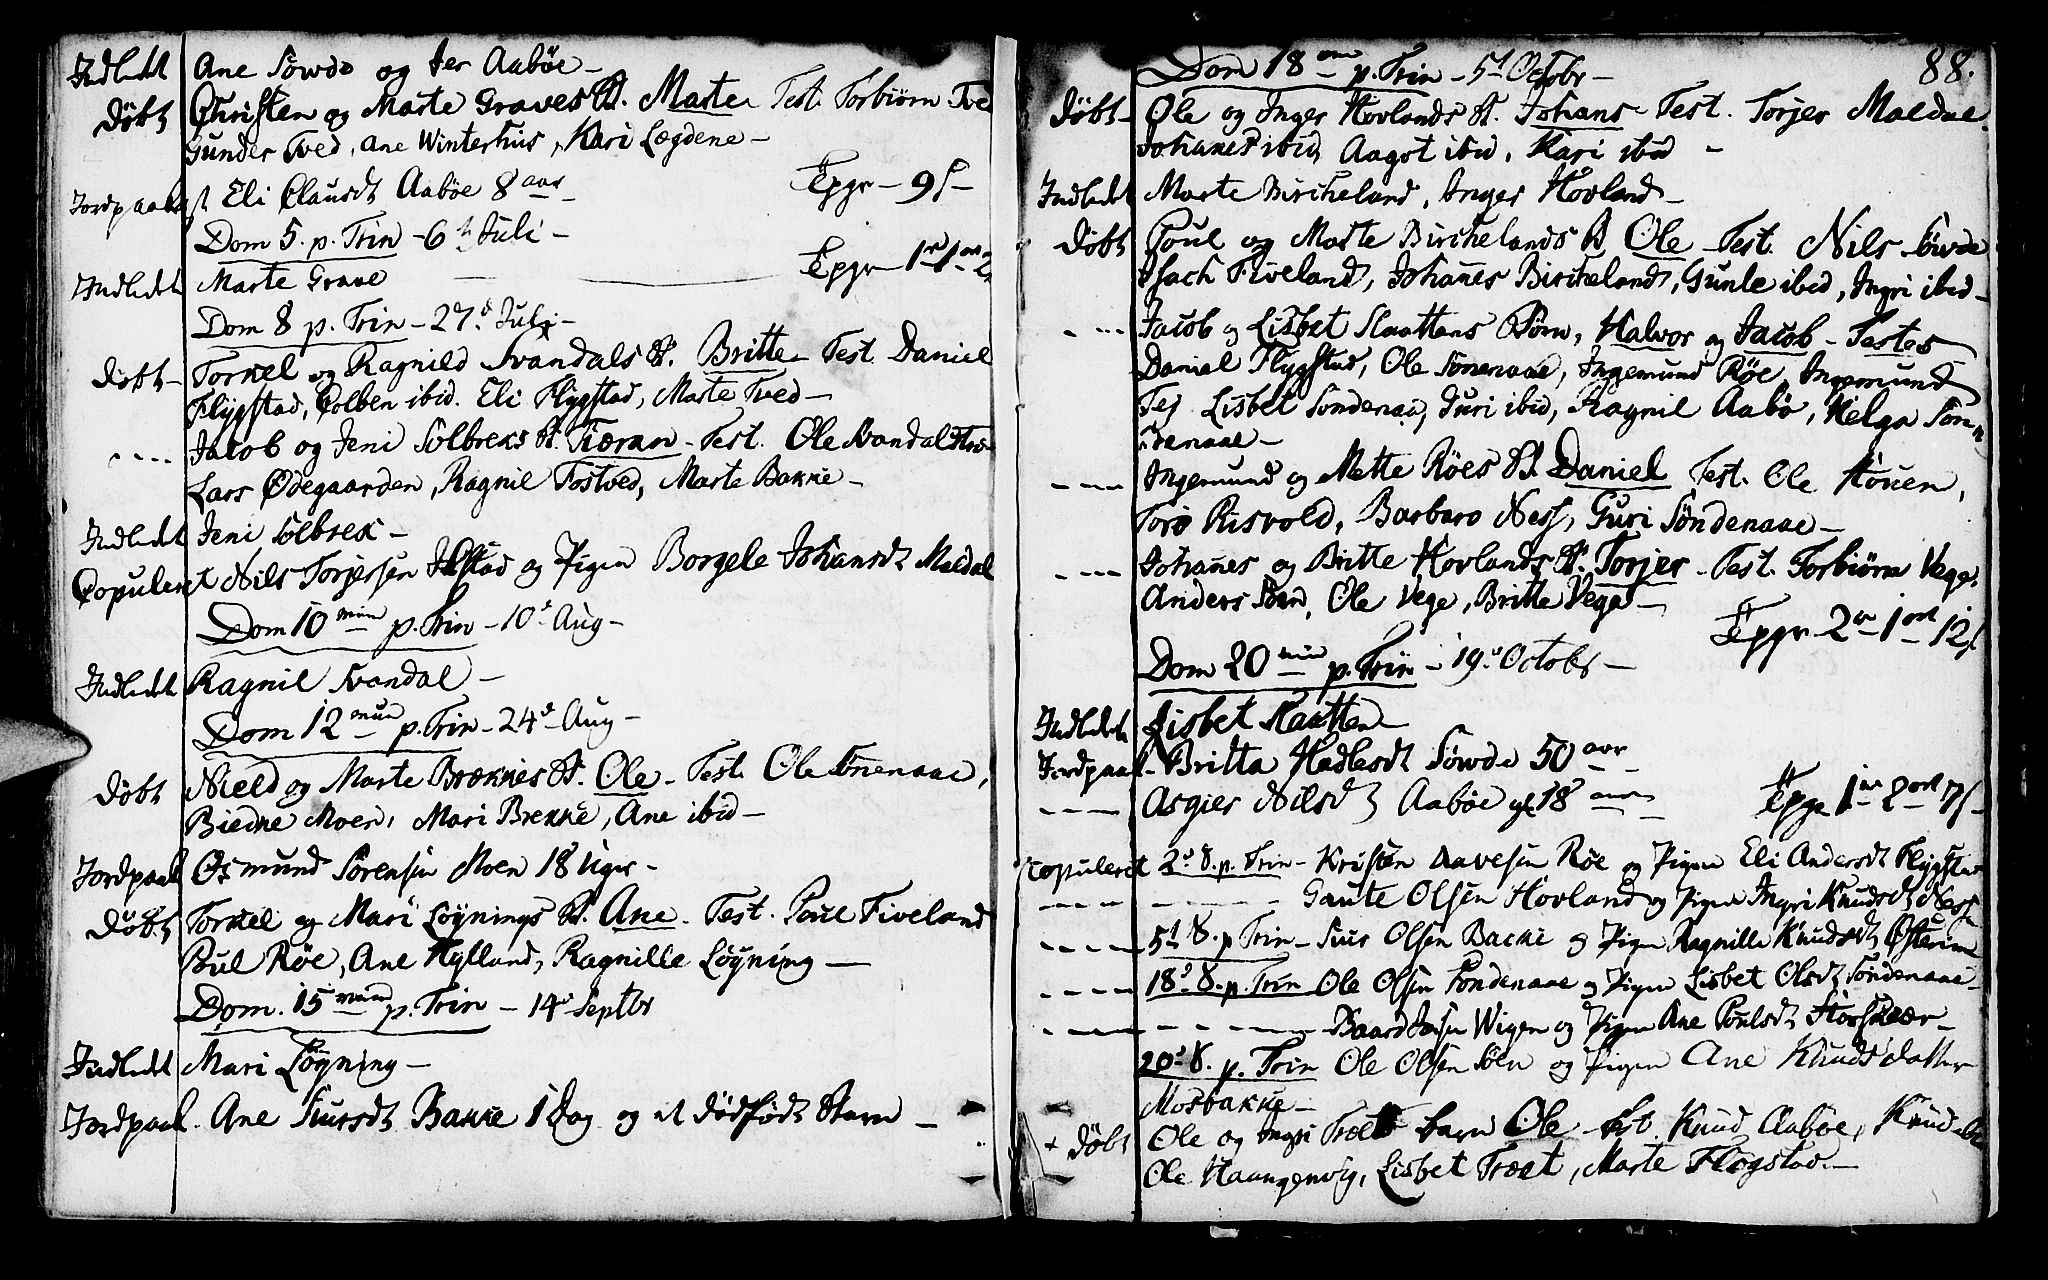 Indledt Ane Sowde og Aabøe -
Døbt Christen og Marte Graves B. Marte Test. Torbiørn Tve
Gunder Tved, Ane Winterhus, Kari Lægdene -
Jordpaakast Eli Clausdt Aabøe 8 aar
Epgr - 9 s -
Dom 5. p. Trin - 6 t Juli -
Epgr
Indledt Marte Grave
Dom 8 p. Trin - 27 d Juli -
Døbt - Torkel og Ragnild Svandals B. Britte - Test Daniel
Flygstad, Colben ibid. Eli Flygstad, Marte Tved -
---- Jacob og Jeni Solbreks B. Tiæran - Test. Ole Svandal
Lars Ødegaarden, Ragnil Tostved, Marte Bakke -
Indledt Jeni Solbrek -
Copuleret Nils Torjersen og Pigen Borgele Johansdt Maldal
Dom 10 min p. Trin - 10 d Aug -
Indledt Ragnil Svandal -
Dom 12 mun p. Trin - 24 d Aug -
Døbt Nield og Marte Brækkes B. Ole - Test. Ole Sonenaae,
Biedne Moen, Mari Brekke, Ane ibid -
Jordpaak Osmund Sørensen Moen 18 Uger -
Døbt Torkel og Mari Løynings B. Ane - Test. Poul Fiveland
Poul Røe, Ane Hylland, Ragnille Løyning -
Dom. 15 mun p. Trin - 14 d Septbr
Indledt Mari Løyning -
Jordpaak. Ane Siursdt Bakke 1 Dag og et dødfødt Barn -
88.
Dom 18 p. Trin - 5 t Octobr -
Døbt - Ole og Inger Hovlands B. Johans - Test. Torjer Maldal
Johanes ibid, Aagot ibid, Kari ibid -
Indledt Marte Birckeland, Inger Hovland -
Døbt Poul og Marte Birckelands B. Ole - Test. Nils Sowde
Isach Fiveland, Johanes Birckeland, Gunle ibid, Ingri ibid -
---- Jacob og Lisbet Slaattens Børn, Halvor og Jacob - Testes
Daniel Flygstad, Ole Sonenaae, Ingemund Røe, Ingemund
Tej Lisbet Sondenaa, Guri ibid, Ragnil Aabø, Helga Son
denaae -
---- Ingemund og Mette Røes B. Daniel Test. Ole Houen,
Tore Risvold, Barbaro Ness, Guri Søndenaae -
---- Johanes og Britte Hovlands B. Torjer - Test. Torbiørn Vege,
Anders Soen, Ole Vege, Britte Vege -
Epgr - 2 1 ort 12 s
Dom 20 min p. Trin - 19 d Octobr -
Indledt Lisbet Slaatten
Jordpaak - Britta Hadlesdt Sowde 50 aar
---- Asgier Nilsdt Aabøe 18 aar
Epgr 1 2 ort 7 s -
Copuleret 2 d S. p. Trin - Kristen Aavesen Røe og Pigen Eli Andersdt Flygstad
---- Gaute Olsen Hovland og Pigen Ingri Knudsdt Ness
---- 5 t S. p Trin - Siur Olsen Backe og Pigen Ragnille Knudsdt Østerim
---- 18 d S. p. Trin Ole Olsen Sondenaae og Pigen Lisbet Olsdt Sondenaae -
---- Baard Wigen og Pigen Ane Poulsdt
20 d S. p. Trin Ole Olsen Soen og Pigen Ane Knudsdatter
Mosbakke -
+ Døbt Ole og Ingri Træet barn Ole Test. Knud Aabøe, Knud
Ole Haangenvig, Lisbet Træet, Marte Flogstad -